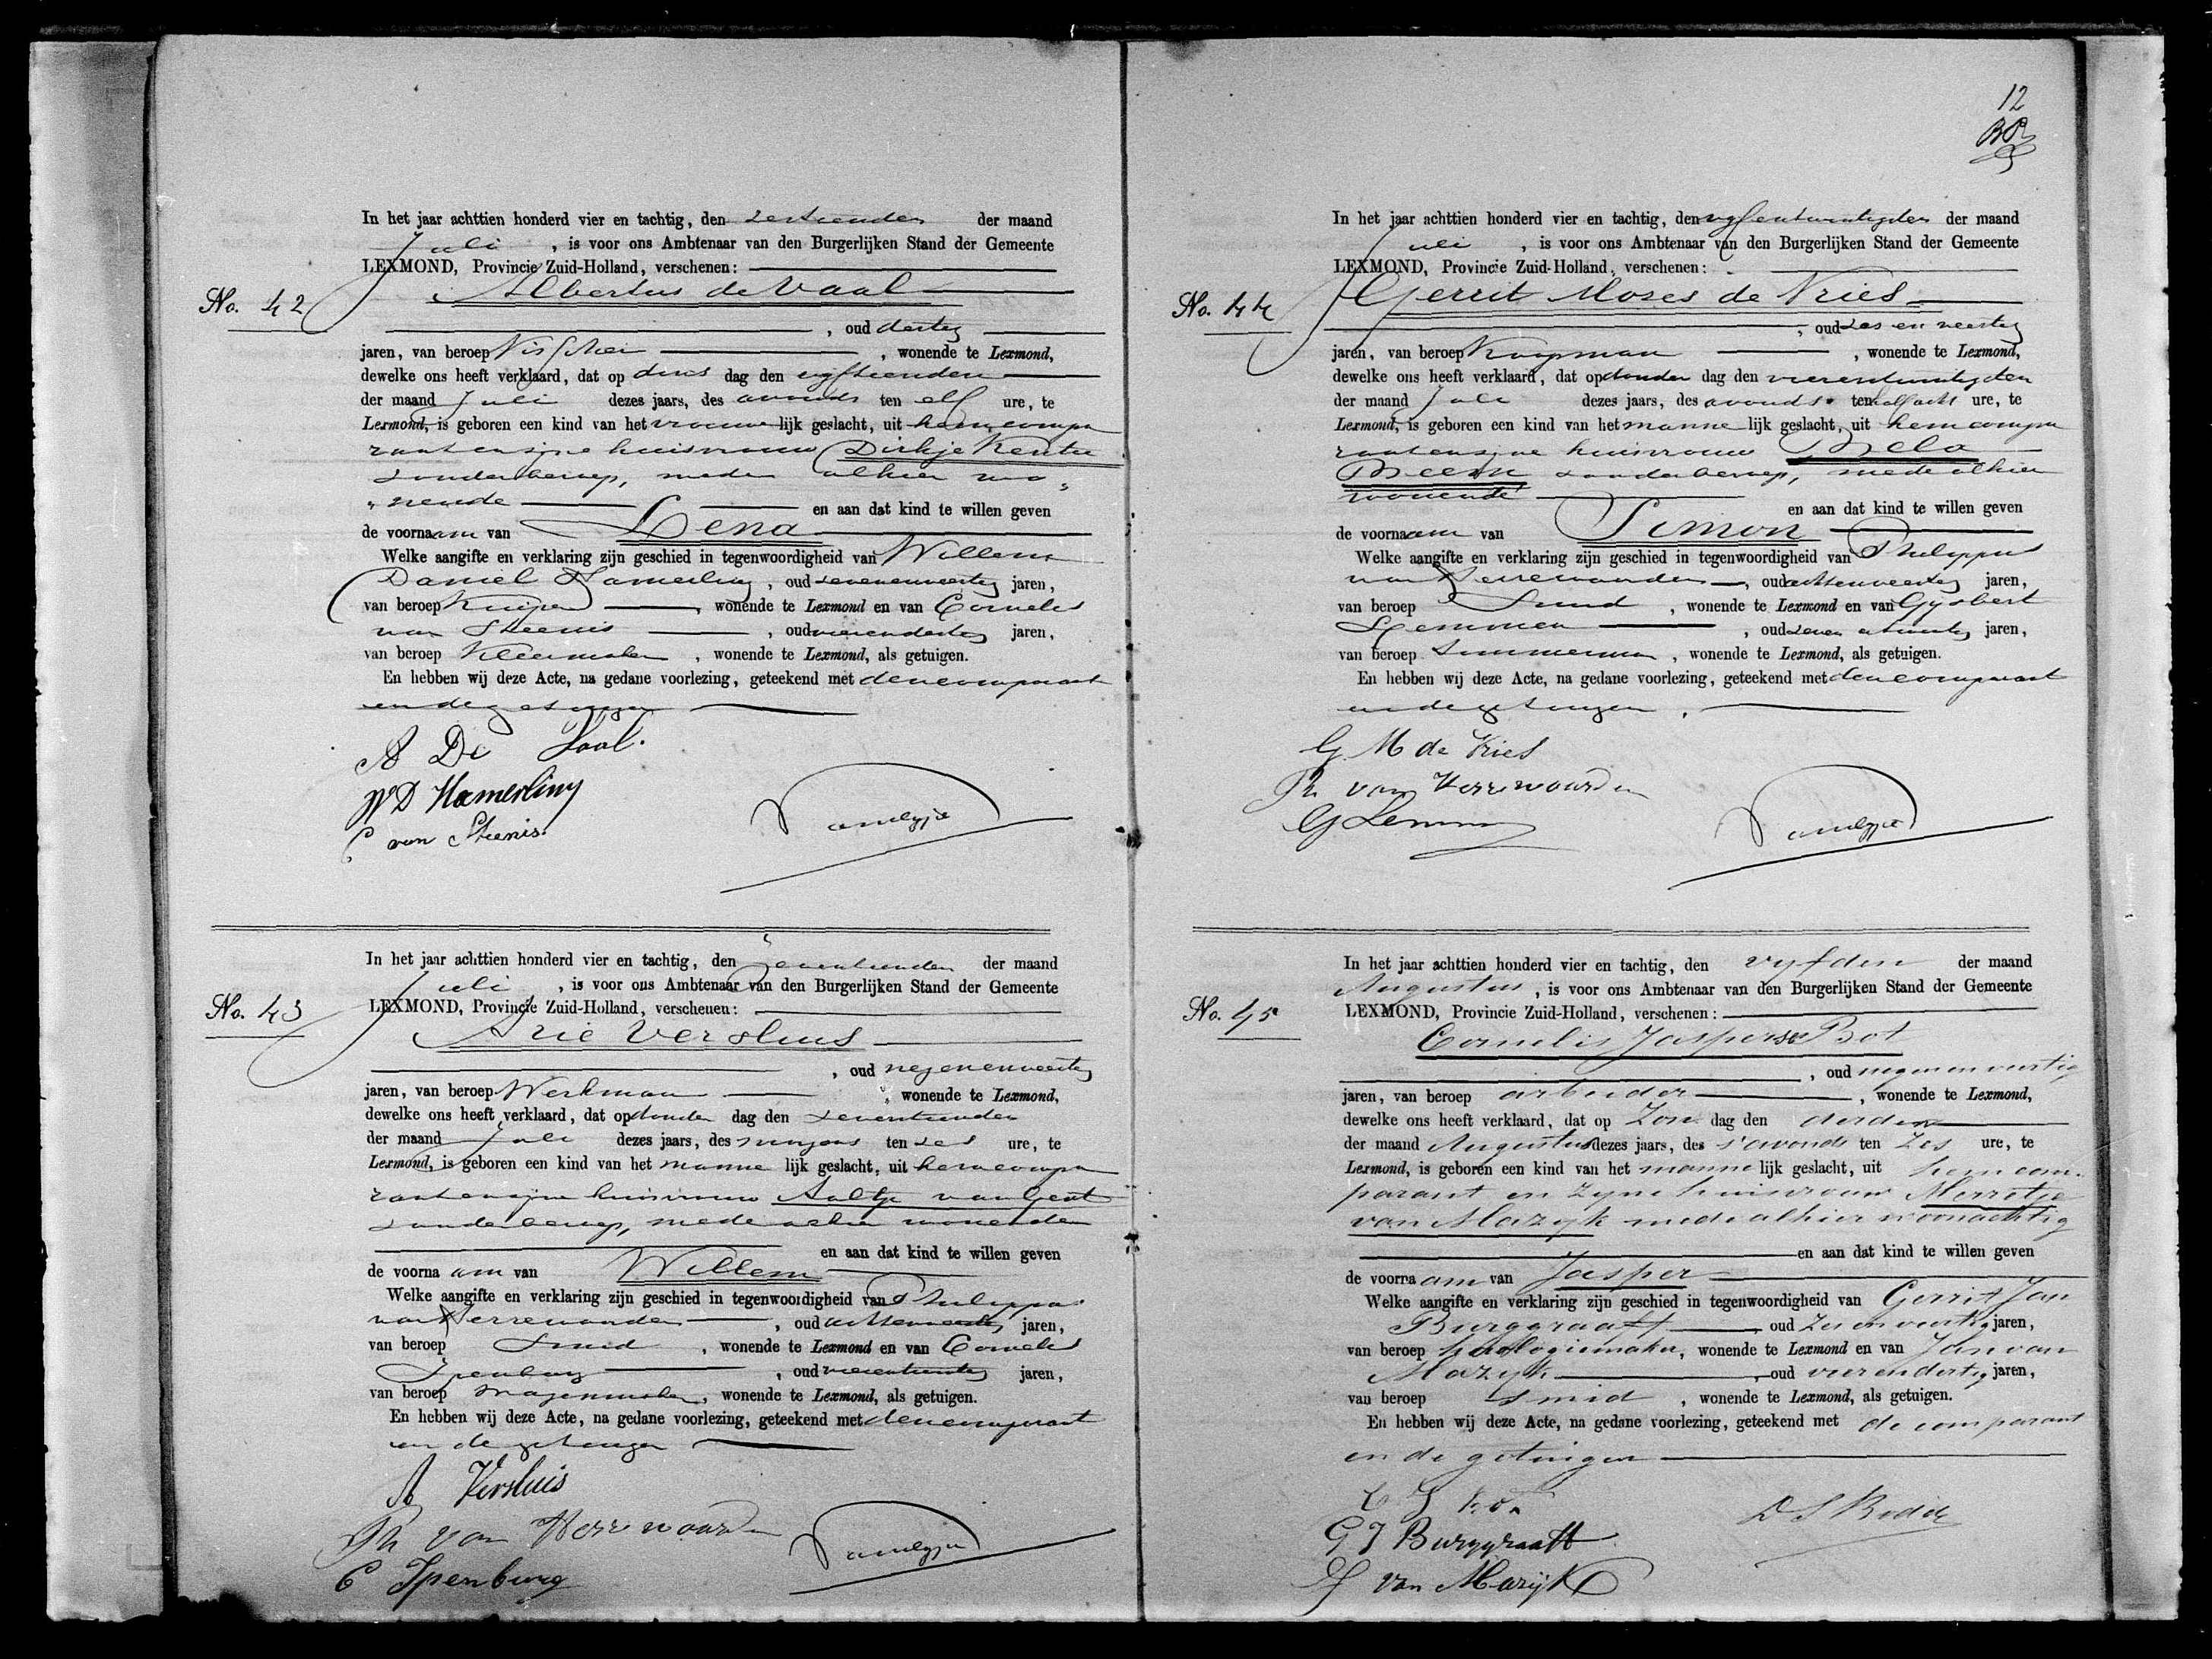 In het jaar achttien honderd vier en tachtig, den zestienden der maand
Juli, is voor ons Ambtenaar van den Burgerlijken Stand der Gemeente
LEXMOND, Provincie Zuid-Holland, verschenen:
No. 42
Albertus de Vaal
, oud dertig
jaren, van beroep Visscher, wonende te Lexmond,
dewelke ons heeft verklaard, dat op dins dag den vyftienden
der maand Juli dezes jaars, des avonds ten elf ure, te
Lexmond, is geboren een kind van het vrouwelijk geslacht, uit hem compa
rant en zijne huisvrouw Dirkje Kentie
zonder beroep, mede alhier wo„
„nende en aan dat kind te willen geven
de voornaam van Lena
Welke aangifte en verklaring zijn geschied in tegenwoordigheid van Willem
Daniel Hamerling, oud zevenenveertig jaren,
van beroep Kuiper, wonende te Lexmond en van Cornelis
van Steenis, oud vierendertig jaren,
van beroep Kleermaker, wonende te Lexmond, als getuigen.
En hebben wij deze Acte, na gedane voorlezing, geteekend met den comparant
en de getuigen
A De Vaal.
W D Hamerling
C van Steenis.
In het jaar achttien honderd vier en tachtig, den zeventienden der maand
Juli, is voor ons Ambtenaar van den Burgerlijken Stand der Gemeente
No. 43
LEXMOND, Provincie Zuid-Holland, verschenen:
Arie Versluis
, oud negenenveertig
jaren, van beroep Werkman, wonende te Lexmond,
dewelke ons heeft verklaard, dat op donder dag den zeventienden
der maand Juli dezes jaars, des morgens ten zes ure, te
Lexmond, is geboren een kind van het mannelijk geslacht, uit hem compa
rant en zijne huisvrouw Aaltje van Gent
zonder beroep, mede alhier wonende
en aan dat kind te willen geven
de voornaam van Willem
Welke aangifte en verklaring zijn geschied in tegenwoordigheid van Philippus
van Herrewaarden, oud achtenveertig jaren,
van beroep Smid, wonende te Lexmond en van Cornelis
Ipenburg, oud vierentwintig jaren,
van beroep wagenmaker, wonende te Lexmond, als getuigen.
En hebben wij deze Acte, na gedane voorlezing, geteekend met den comparant
en de getuigen
A Versluis
Ph van Herrewaarden
C Ipenburg
12
In het jaar achttien honderd vier en tachtig, den vyfentwintigsten der maand
Juli, is voor ons Ambtenaar van den Burgerlijken Stand der Gemeente
LEXMOND, Provincie Zuid-Holland, verschenen:
No. 44
Gerrit Moses de Vries
, oud zes en veertig
jaren, van beroep Koopman, wonende te Lexmond,
dewelke ons heeft verklaard, dat op donder dag den vierentwintigsten
der maand Juli dezes jaars, des avonds ten half acht ure, te
Lexmond, is geboren een kind van het mannelijk geslacht, uit hem compa
rant en zijne huisvrouw Bela
Beem zonder beroep, mede alhier
wonende
en aan dat kind te willen geven
de voornaam van Simon
Welke aangifte en verklaring zijn geschied in tegenwoordigheid van Philippus
van Herrewaarden, oud achtenveertig jaren,
van beroep Smid, wonende te Lexmond en van Gysbert
Lemmen, oud zeven entwintig jaren,
van beroep Timmerman, wonende te Lexmond, als getuigen.
En hebben wij deze Acte, na gedane voorlezing, geteekend met den comparant
en de getuigen.
G. M de Vries
Ph van Herrewaarden
G Lemmen
In het jaar achttien honderd vier en tachtig, den vyfden der maand
Augustus, is voor ons Ambtenaar van den Burgerlijken Stand der Gemeente
No. 45
LEXMOND, Provincie Zuid-Holland, verschenen:
Cornelis Jasperse Bot
, oud negenenveertig
jaren, van beroep arbeider, wonende te Lexmond,
dewelke ons heeft verklaard, dat op Zon dag den derden
der maand Augustus dezes jaars, des s'avonds ten Zes ure, te
Lexmond, is geboren een kind van het mannelijk geslacht, uit hem com.
parant en Zyne huisvrouw Merretje
van Mazyk mede alhier woonachtig
en aan dat kind te willen geven
de voornaam van Jasper
Welke aangifte en verklaring zijn geschied in tegenwoordigheid van Gerrit Jan
Burggraaff, oud Zesenveertig jaren,
van beroep horlogiemaker, wonende te Lexmond en van Jan van
Mazyk, oud vierendertig jaren,
van beroep Smid, wonende te Lexmond, als getuigen.
En hebben wij deze Acte, na gedane voorlezing, geteekend met de comparant
en de getuigen
C J Bot
G J Burggraaff
J van Mazijk